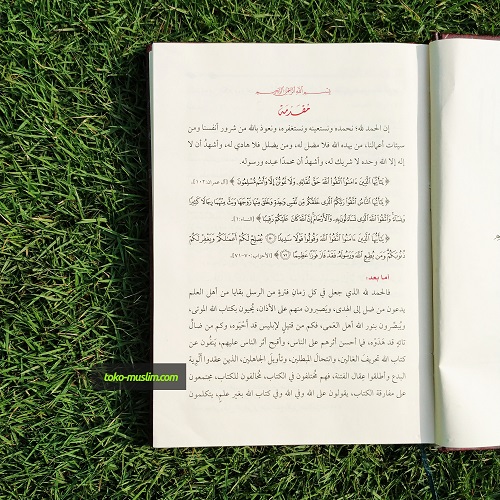 بسم الله الرحمن الرحيم
مقدمة
إن الحمد لله؛ نحمده ونستعينه ونستغفره، ونعوذ بالله من شرور أنفسنا ومن
سيئات أعمالنا، من يهده الله فلا مضل له، ومن يضلل فلا هادي له، وأشهدُ أن لا
إله إلا الله وحده لا شريك له، وأشهدُ أن محمدًا عبده ورسوله.
﴿ يَٰٓأَيُّهَا ٱلَّذِينَ ءَامَنُوا۟ ٱتَّقُوا۟ ٱللَّهَ حَقَّ تُقَاتِهِۦ وَلَا تَمُوتُنَّ إِلَّا وَأَنتُم مُّسْلِمُونَ ﴾ [آل عمران: ١٠٢].
﴿ يَٰٓأَيُّهَا ٱلنَّاسُ ٱتَّقُوا۟ رَبَّكُمُ ٱلَّذِى خَلَقَكُم مِّن نَّفْسٍ وَٰحِدَةٍ وَخَلَقَ مِنْهَا زَوْجَهَا وَبَثَّ مِنْهُمَا رِجَالًا كَثِيرًا
وَنِسَآءً وَٱتَّقُوا۟ ٱللَّهَ ٱلَّذِى تَسَآءَلُونَ بِهِۦ وَٱلْأَرْحَامَ إِنَّ ٱللَّهَ كَانَ عَلَيْكُمْ رَقِيبًا ﴾ [النساء: ١].
﴿ يَٰٓأَيُّهَا ٱلَّذِينَ ءَامَنُوا۟ ٱتَّقُوا۟ ٱللَّهَ وَقُولُوا۟ قَوْلًا سَدِيدًا ۝٧٠ يُصْلِحْ لَكُمْ أَعْمَٰلَكُمْ وَيَغْفِرْ لَكُمْ
ذُنُوبَكُمْ وَمَن يُطِعِ ٱللَّهَ وَرَسُولَهُۥ فَقَدْ فَازَ فَوْزًا عَظِيمًا ۝٧١ ﴾ [الأحزاب: ٧٠-٧١].
أما بعد:
فالحمد لله الذي جعل في كل زمانِ فترةٍ من الرسل بقايا من أهل العلم
يدعون من ضل إلى الهدى، ويصبرون منهم على الأذى، يُحيون بكتاب الله الموتى،
ويُبصِّرون بنور الله أهل العَمى، فكم من قتيلٍ لإبليس قد أحْيَوه، وكم من ضالٍّ
تائهٍ قد هَدَوْه، فما أحسن أثرهم على الناس، وأقبح أثر الناس عليهم، يَنْفُون عن
كتاب الله تحريفَ الغالين، وانتحالَ المبطلين، وتأويلَ الجاهلين، الذين عقدوا ألْوِية
البدع وأطلقوا عِقال الفتنة، فهم مُختلفون في الكتاب، مُخالفون للكتاب، مجتمعون
على مفارقة الكتاب، يقولون على الله وفي الله وفي كتاب الله بغير علمٍ، يتكلمون
toko-muslim.com